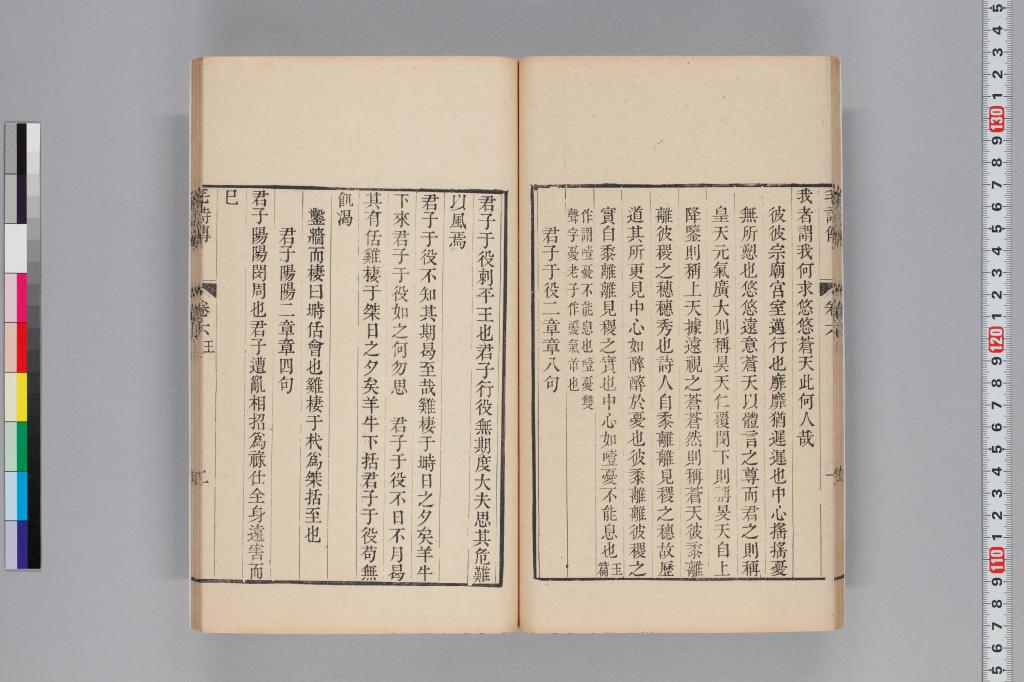 我者謂我何求悠悠蒼天此何人哉
彼彼宗廟宮室邁行也靡靡猶遲遲也中心搖搖憂
無所愬也悠悠遠意蒼天以體言之尊而君之則稱
皇天元氣廣大則稱昊天仁覆閔下則稱旻天自上
降鑒則稱上天據遠視之蒼蒼然則稱蒼天彼黍離
離彼稷之穗穗秀也詩人自黍離離見稷之穗故歷
道其所更見中心如醉醉於憂也彼黍離離彼稷之
實自黍離離見稷之實也中心如噎憂不能息也玉篇
作謂噎憂不能息也噎憂雙
聲字憂老子作嚘氣逆也
君子于役二章章八句
君子于役刺平王也君子行役無期度大夫思其危難
以風焉
君子于役不知其期曷至哉雞棲于塒日之夕矣羊牛
下來君子于役如之何勿思 君子于役不日不月曷
其有佸雞棲于桀日之夕矣羊牛下括君子于役苟無
飢渴
鑿牆而棲曰塒佸會也雞棲于杙為桀括至也
君子陽陽二章章四句
君子陽陽閔周也君子遭亂相招為祿仕全身遠害而
已
毛詩傳 卷六 王 二